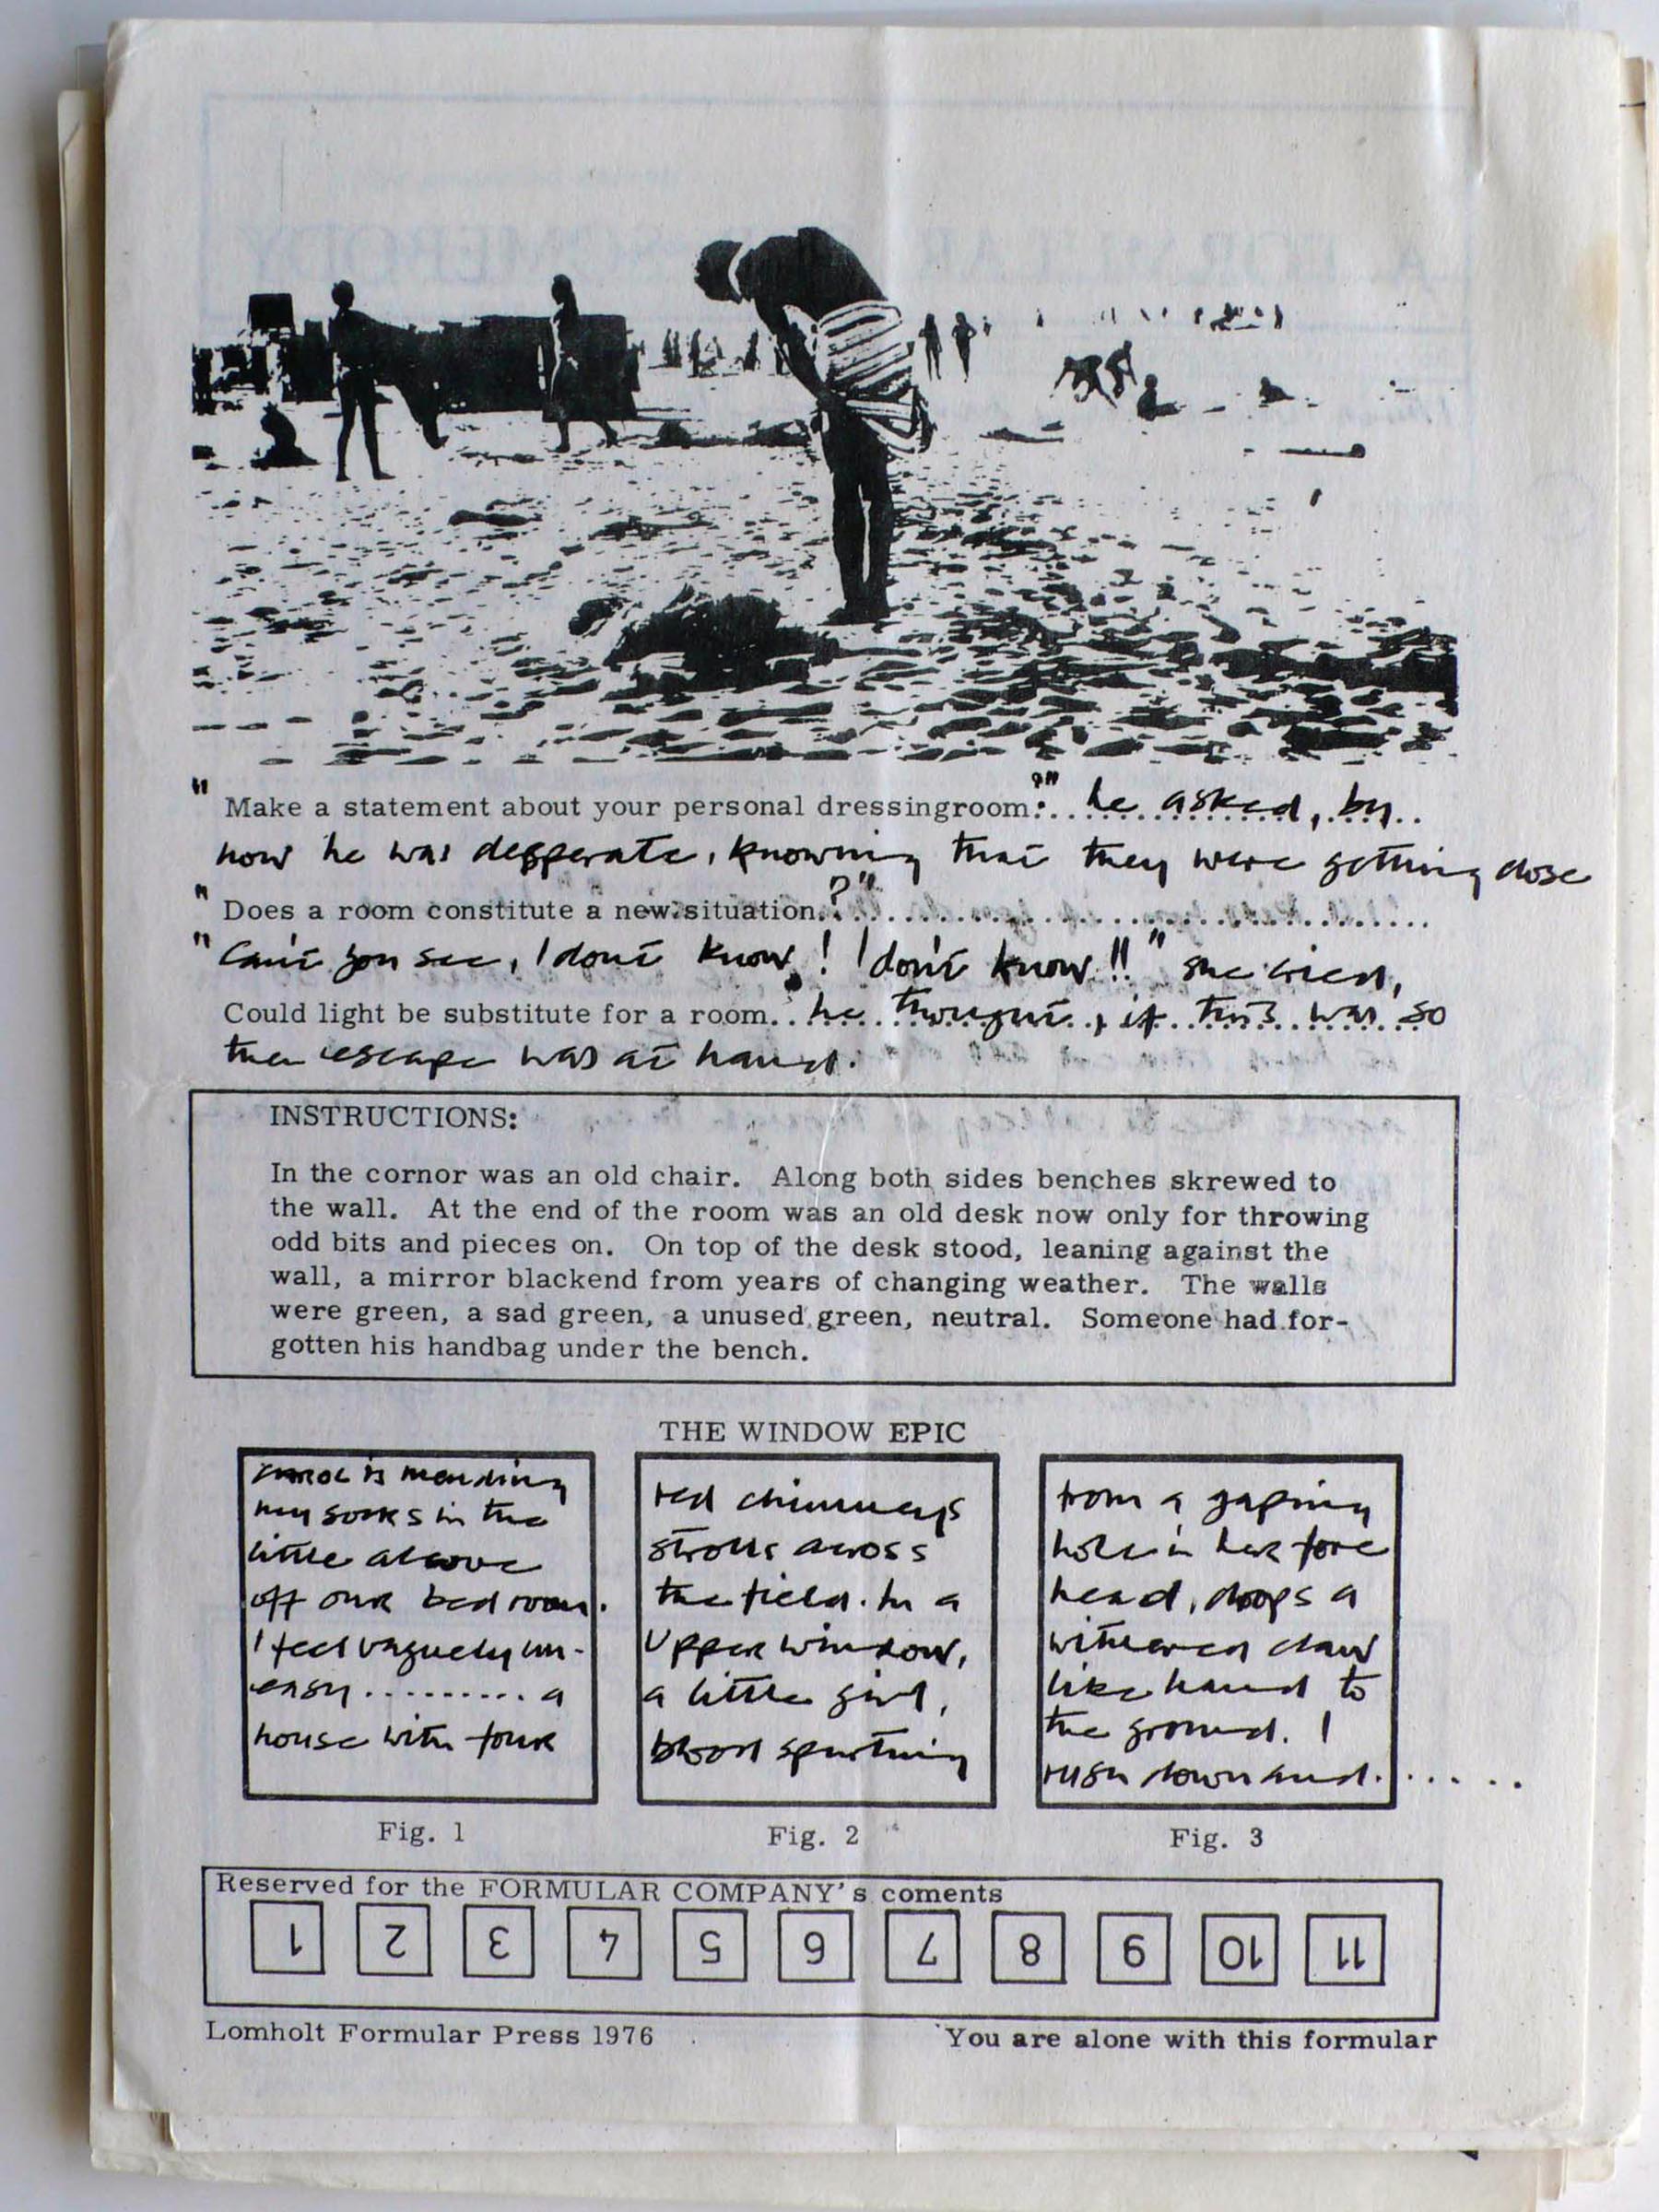 "Make a statement about your personal dressingroom:?" he asked, by
now he was desperate, knowing that they were getting close
"Does a room constitute a new situation.?"
"Can't you see, I don't know! I don't know!!" she cried,
Could light be substitute for a room.. he thought, if this was so
then escape was at hand.
INSTRUCTIONS:
In the cornor was an old chair. Along both sides benches skrewed to
the wall. At the end of the room was an old desk now only for throwing
odd bits and pieces on. On top of the desk stood, leaning against the
wall, a mirror blackend from years of changing weather. The walls
were green, a sad green, a unused green, neutral. Someone had for-
gotten his handbag under the bench.
THE WINDOW EPIC
Carol is mending
my socks in the
little alcove
off our bedroom.
I feel vaguely un-
easy ......... a
house with four
Fig. 1
red chimneys
strolls across
the field. In a
upper window,
a little girl,
blood spurting
Fig. 2
from a gaping
hole in her fore
head, drops a
withered claw
like hand to
the ground. I
rush down and......
Fig. 3
Reserved for the FORMULAR COMPANY's coments
1 2 3 4 5 6 7 8 9 10 11
Lomholt Formular Press 1976
You are alone with this formular